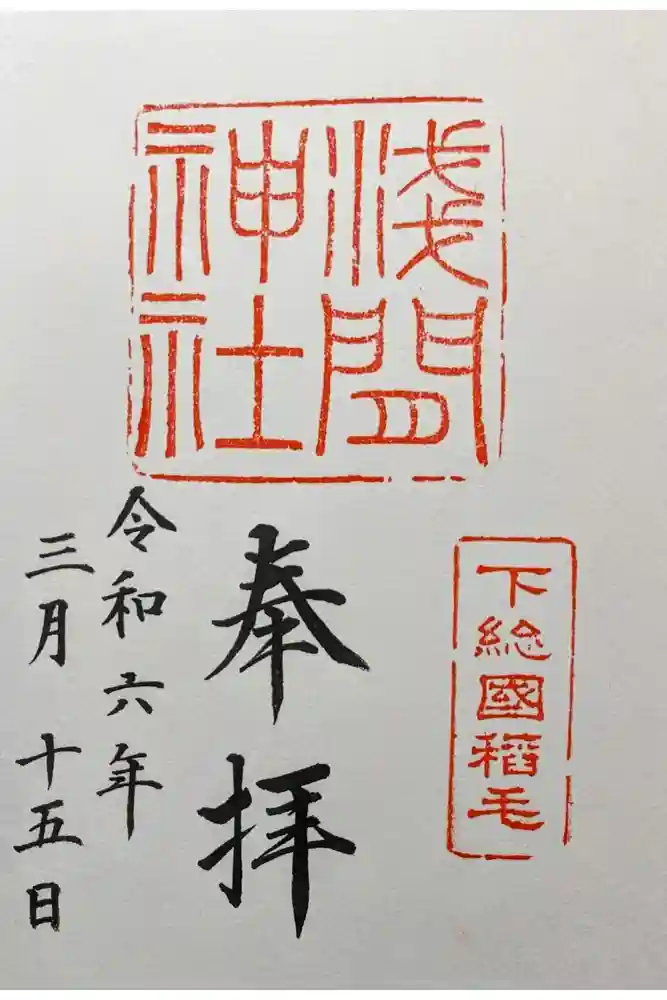 浅間
神社
下総國稲毛
奉拝
令和六年
三月十五日